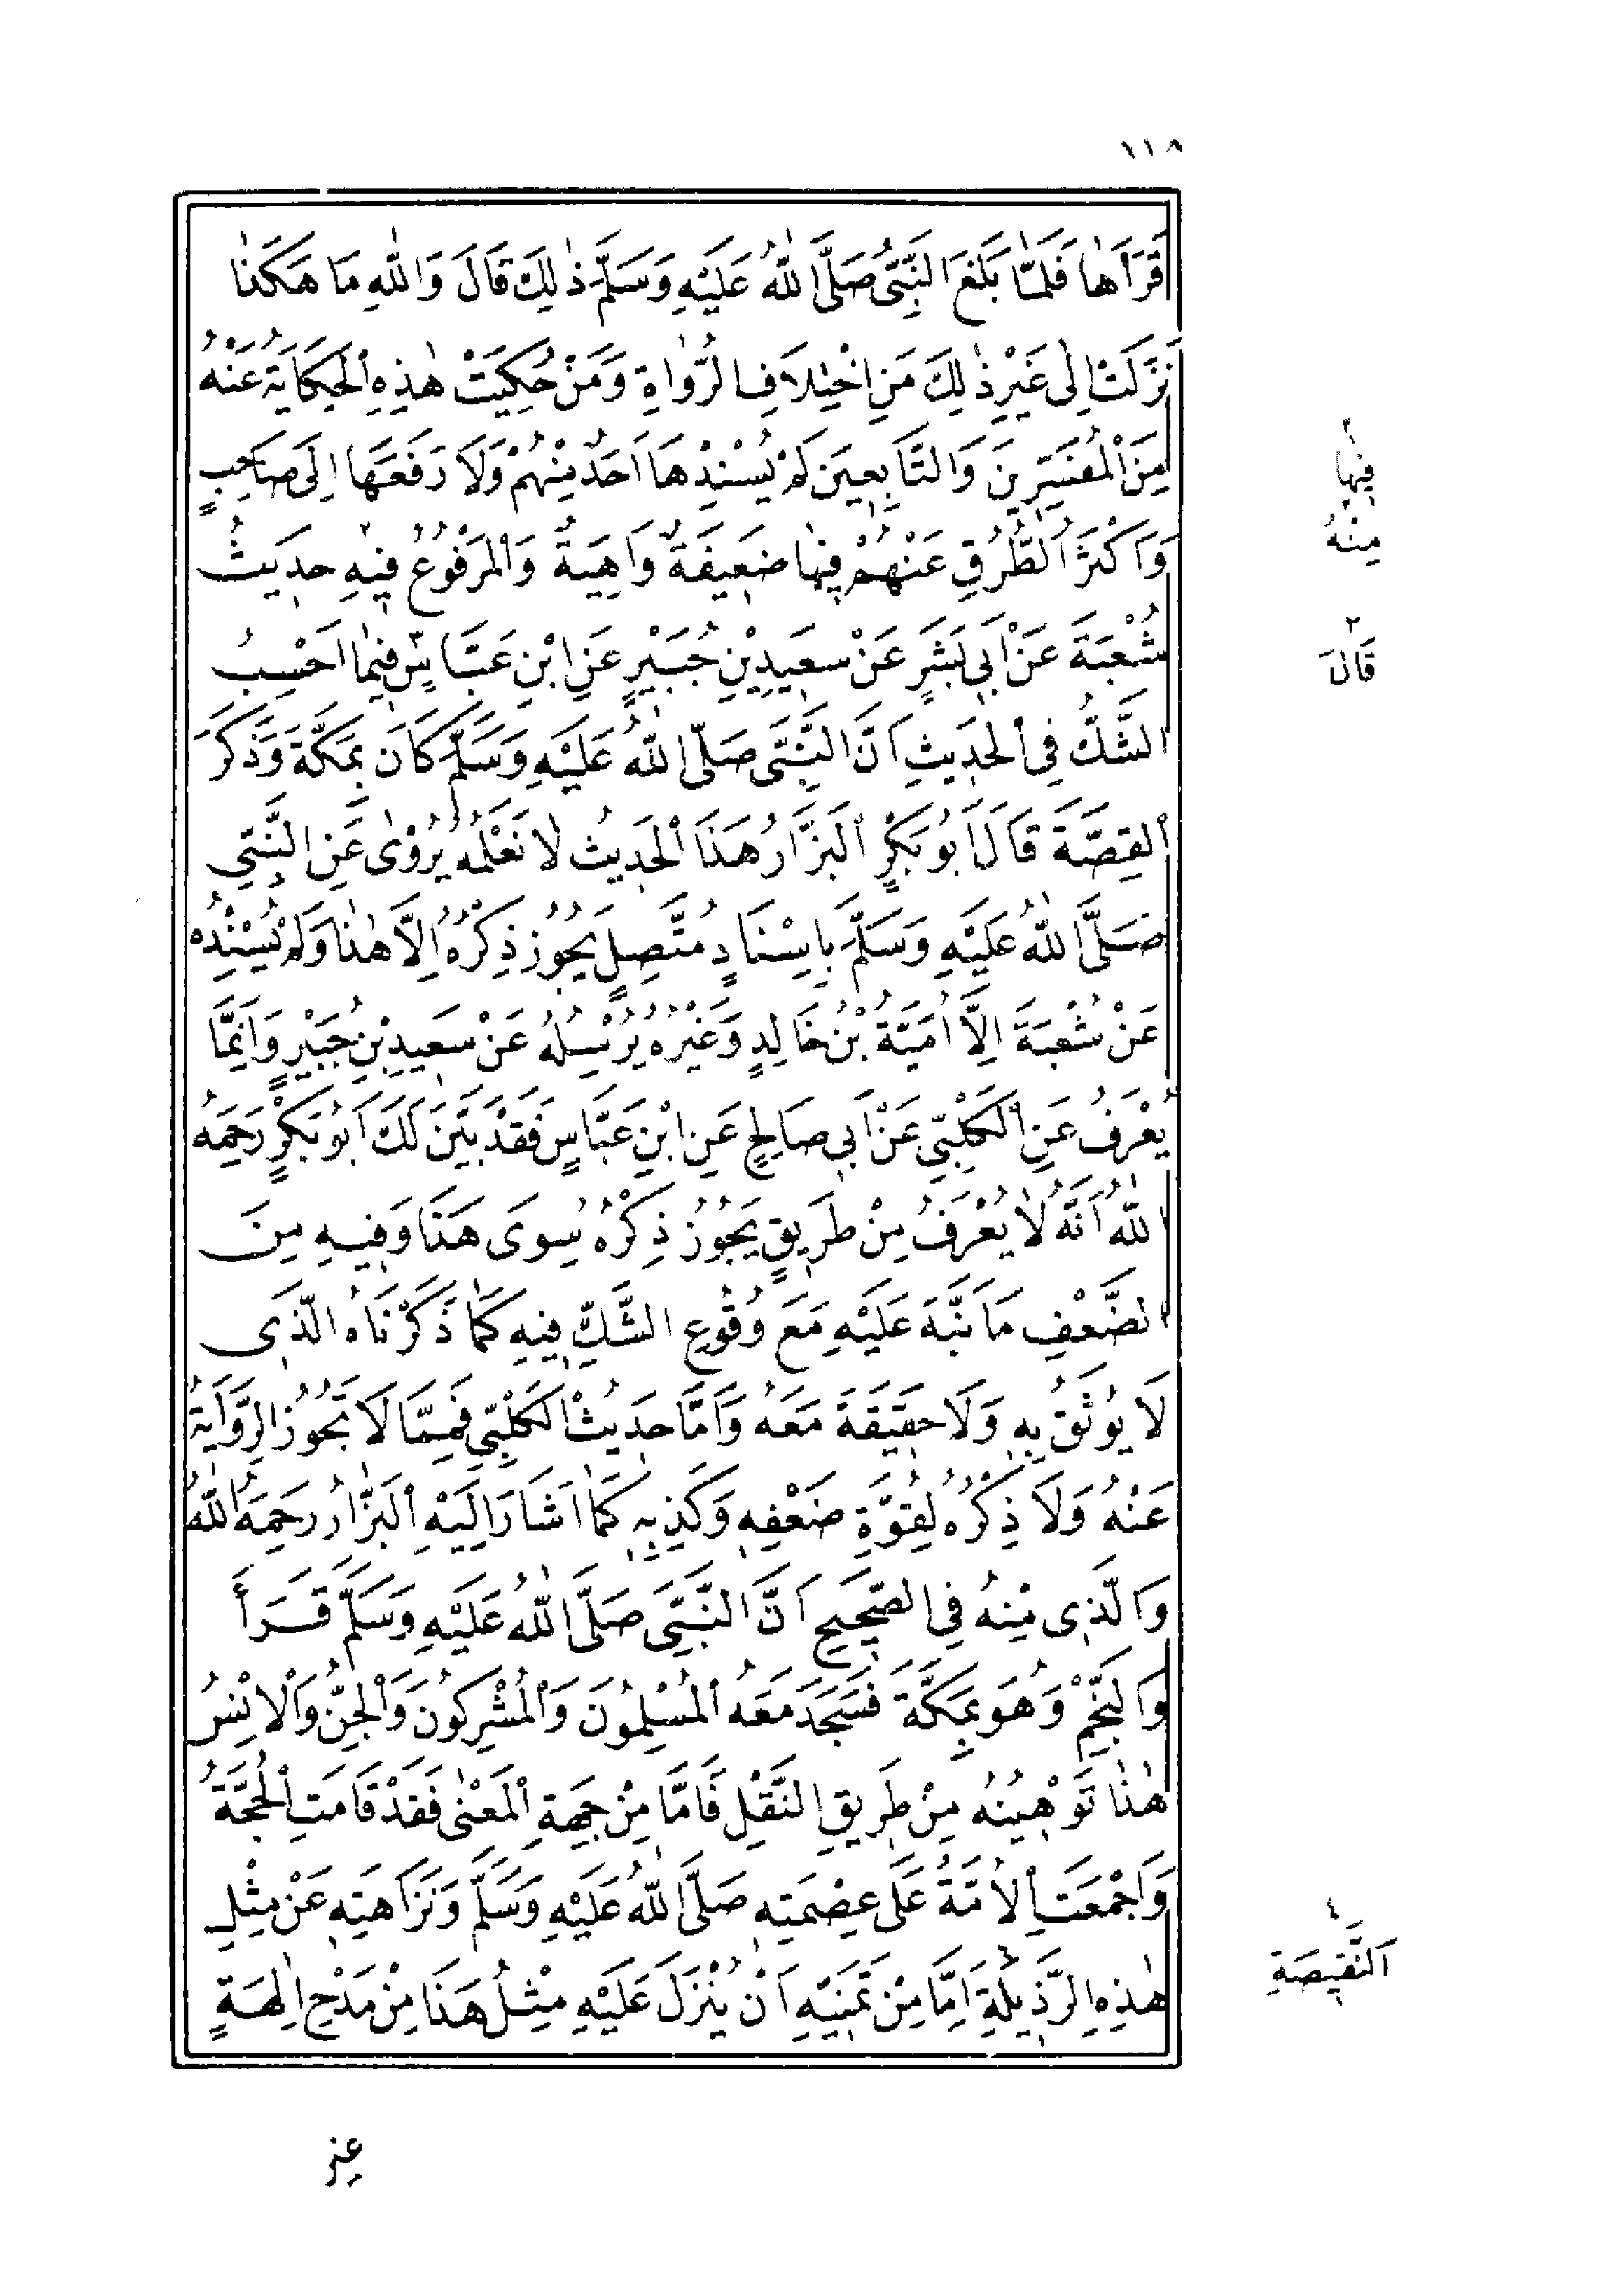 ١١٨
قَرَأَهَا فَلَمَّا بَلَغَ النَّبِىَّ صَلَّى اللّٰهُ عَلَيْهِ وَسَلَّمَ ذٰلِكَ قَالَ وَاللّٰهِ مَا هَكَذَا
نَزَلَتْ اِلٰى غَيْرِ ذٰلِكَ مِنِ اخْتِلَافِ الرُّوَاةِ وَمَنْ حُكِيَتْ هٰذِهِ الْحِكَايَةُ عَنْهُ
مِنَ الْمُفَسِّرِينَ وَالتَّابِعِينَ لَمْ يُسْنِدْهَا اَحَدٌ مِنْهُمْ وَلَا رَفَعَهَا اِلَى صَاحِبٍ
وَاَكْثَرُ الطُّرُقِ عَنْهُمْ فِيهَا ضَعِيفَةٌ وَاهِيَةٌ وَالْمَرْفُوعُ فِيهِ حَدِيثُ
شُعْبَةَ عَنْ اَبِى بَشَرٍ عَنْ سَعِيدِ بْنِ جُبَيْرٍ عَنِ ابْنِ عَبَّاسٍ فِيمَا اَحْسِبُ
الشَّكُّ فِى الْحَدِيثِ اَنَّ النَّبِىَّ صَلَّى اللّٰهُ عَلَيْهِ وَسَلَّمَ كَانَ بِمَكَّةَ وَذَكَرَ
الْقِصَّةَ قَالَ اَبُو بَكْرٍ الْبَزَّارُ هَذَا الْحَدِيثُ لَا نَعْلَمُهُ يُرْوٰى عَنِ النَّبِىِّ
صَلَّى اللّٰهُ عَلَيْهِ وَسَلَّمَ بِاِسْنَادٍ مُتَّصِلٍ يَجُوزُ ذِكْرُهُ اِلَّا هٰذَا وَلَمْ يُسْنِدْهُ
عَنْ شُعْبَةَ اِلَّا اُمَيَّةُ بْنُ خَالِدٍ وَغَيْرُهُ يُرْسِلُهُ عَنْ سَعِيدِ بْنِ جُبَيْرٍ وَاِنَّمَا
يُعْرَفُ عَنِ الْكَلْبِىِّ عَنْ اَبِى صَالِحٍ عَنِ ابْنِ عَبَّاسٍ فَقَدْ بَيَّنَ لَكَ اَبُو بَكْرٍ رَحِمَهُ
اللّٰهُ اَنَّهُ لَا يُعْرَفُ مِنْ طَرِيقٍ يَجُوزُ ذِكْرُهُ سِوَى هَذَا وَفِيهِ مِنَ
الضَّعْفِ مَا نَبَّهَ عَلَيْهِ مَعَ وُقُوعِ الشَّكِّ فِيهِ كَمَا ذَكَرْنَاهُ الَّذِى
لَا يُوثَقُ بِهِ وَلَا حَقِيقَةَ مَعَهُ وَاَمَّا حَدِيثُ الْكَلْبِىِّ فَمِمَّا لَا تَجُوزُ الرِّوَايَةُ
عَنْهُ وَلَا ذِكْرُهُ لِقُوَّةِ ضَعْفِهِ وَكَذِبِهِ كَمَا اَشَارَ اِلَيْهِ الْبَزَّارُ رَحِمَهُ اللّٰهُ
وَالَّذِى مِنْهُ فِى الصَّحِيحِ اَنَّ النَّبِىَّ صَلَّى اللّٰهُ عَلَيْهِ وَسَلَّمَ قَرَأَ
وَالنَّجْمِ وَهُوَ بِمَكَّةَ فَسَجَدَ مَعَهُ الْمُسْلِمُونَ وَالْمُشْرِكُونَ وَالْجِنُّ وَالْاِنْسُ
هٰذَا تَوْهِينُهُ مِنْ طَرِيقِ النَّقْلِ فَاَمَّا مِنْ جِهَةِ الْمَعْنٰى فَقَدْ قَامَتِ الْحُجَّةُ
وَاَجْمَعَتِ الْاُمَّةُ عَلَى عِصْمَتِهِ صَلَّى اللّٰهُ عَلَيْهِ وَسَلَّمَ وَنَزَاهَتِهِ عَنْ مِثْلِ
هٰذِهِ الرَّذِيلَةِ ٤ اِمَّا مِنْ تَمَنِّيهِ اَنْ يُنْزَلَ عَلَيْهِ مِثْلُ هَذَا مِنْ مَدْحِ اٰلِهَةٍ
فِيهَا
٢
مِنْهُ
٣
قَالَ
٤
اَلنَّقِيصَةِ